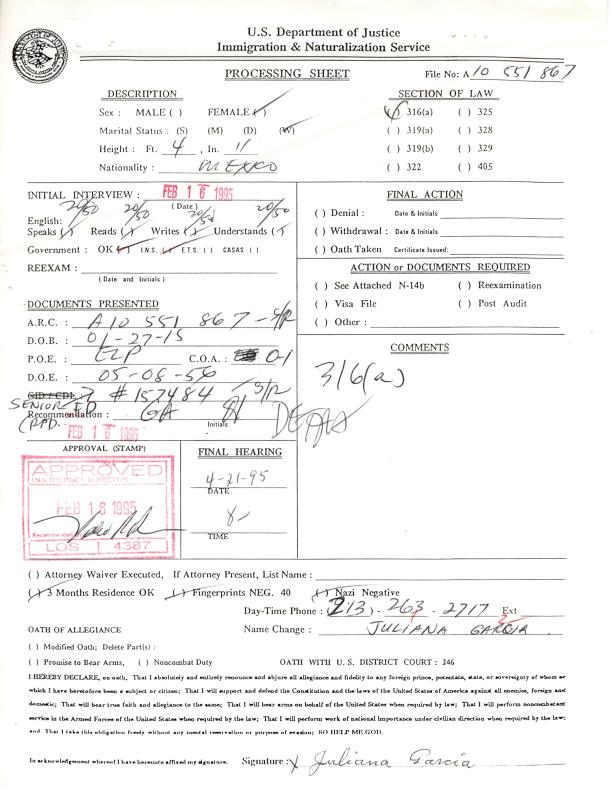 U.S. Department of Justice
Immigration & Naturalization Service
PROCESSING SHEET
File No: A 10 551 867
DESCRIPTION
SECTION OF LAW
Sex : MALE ( ) FEMALE (✓)
(✓) 316(a) ( ) 325
Marital Status : (S) (M) (D) (W)
( ) 319(a) ( ) 328
Height : Ft. 4 , In. 11
( ) 319(b) ( ) 329
Nationality : MEXICO
( ) 322 ( ) 405
INITIAL INTERVIEW : FEB 16 1995
(Date)
FINAL ACTION
20/50 20/50 20/50 20/50
English:
Speaks (✓) Reads (✓) Writes (✓) Understands (✓)
( ) Denial : Date & Initials
( ) Withdrawal : Date & Initials
Government : OK (✓) I.N.S. (✓) E.T.S. ( ) CASAS ( )
( ) Oath Taken Certificate Issued:
REEXAM :
( Date and Initials )
ACTION or DOCUMENTS REQUIRED
( ) See Attached N-14b ( ) Reexamination
( ) Visa File ( ) Post Audit
( ) Other :
DOCUMENTS PRESENTED
A.R.C. : A 10 551 867 -
D.O.B. : 01-27-15
P.O.E. : ELP C.O.A. : 0-1
D.O.E. : 05-08-56
CID/CDL : # 157484
SENIOR ID
Recommendation : GA
Initials
FEB 16 1995
COMMENTS
316(a)
APPROVAL (STAMP)
APPROVED
INS DISTRICT DIRECTOR
FEB 16 1995
Recommended
LOS 4387
FINAL HEARING
4-21-95
DATE
8-
TIME
( ) Attorney Waiver Executed, If Attorney Present, List Name :
(✓) 3 Months Residence OK (✓) Fingerprints NEG. 40 (✓) Nazi Negative
Day-Time Phone : (213) - 263-2717 Ext
OATH OF ALLEGIANCE
Name Change : JULIANA GARCIA
( ) Modified Oath; Delete Part(s) :
( ) Promise to Bear Arms, ( ) Noncombat Duty OATH WITH U.S. DISTRICT COURT : 246
I HEREBY DECLARE, on oath, That I absolutely and entirely renounce and abjure all allegiance and fidelity to any foreign prince, potentate, state, or sovereignty of whom or
which I have heretofore been a subject or citizen; That I will support and defend the Constitution and the laws of the United States of America against all enemies, foreign and
domestic; That will bear true faith and allegiance to the same; That I will bear arms on behalf of the United States when required by law; That I will perform noncombatant
service in the Armed Forces of the United States when required by the law; That I will perform work of national importance under civilian direction when required by the law;
and That I take this obligation freely without any mental reservation or purpose of evasion; SO HELP ME GOD.
In acknowledgement whereof I have hereunto affixed my signature. Signature : x Juliana Garcia